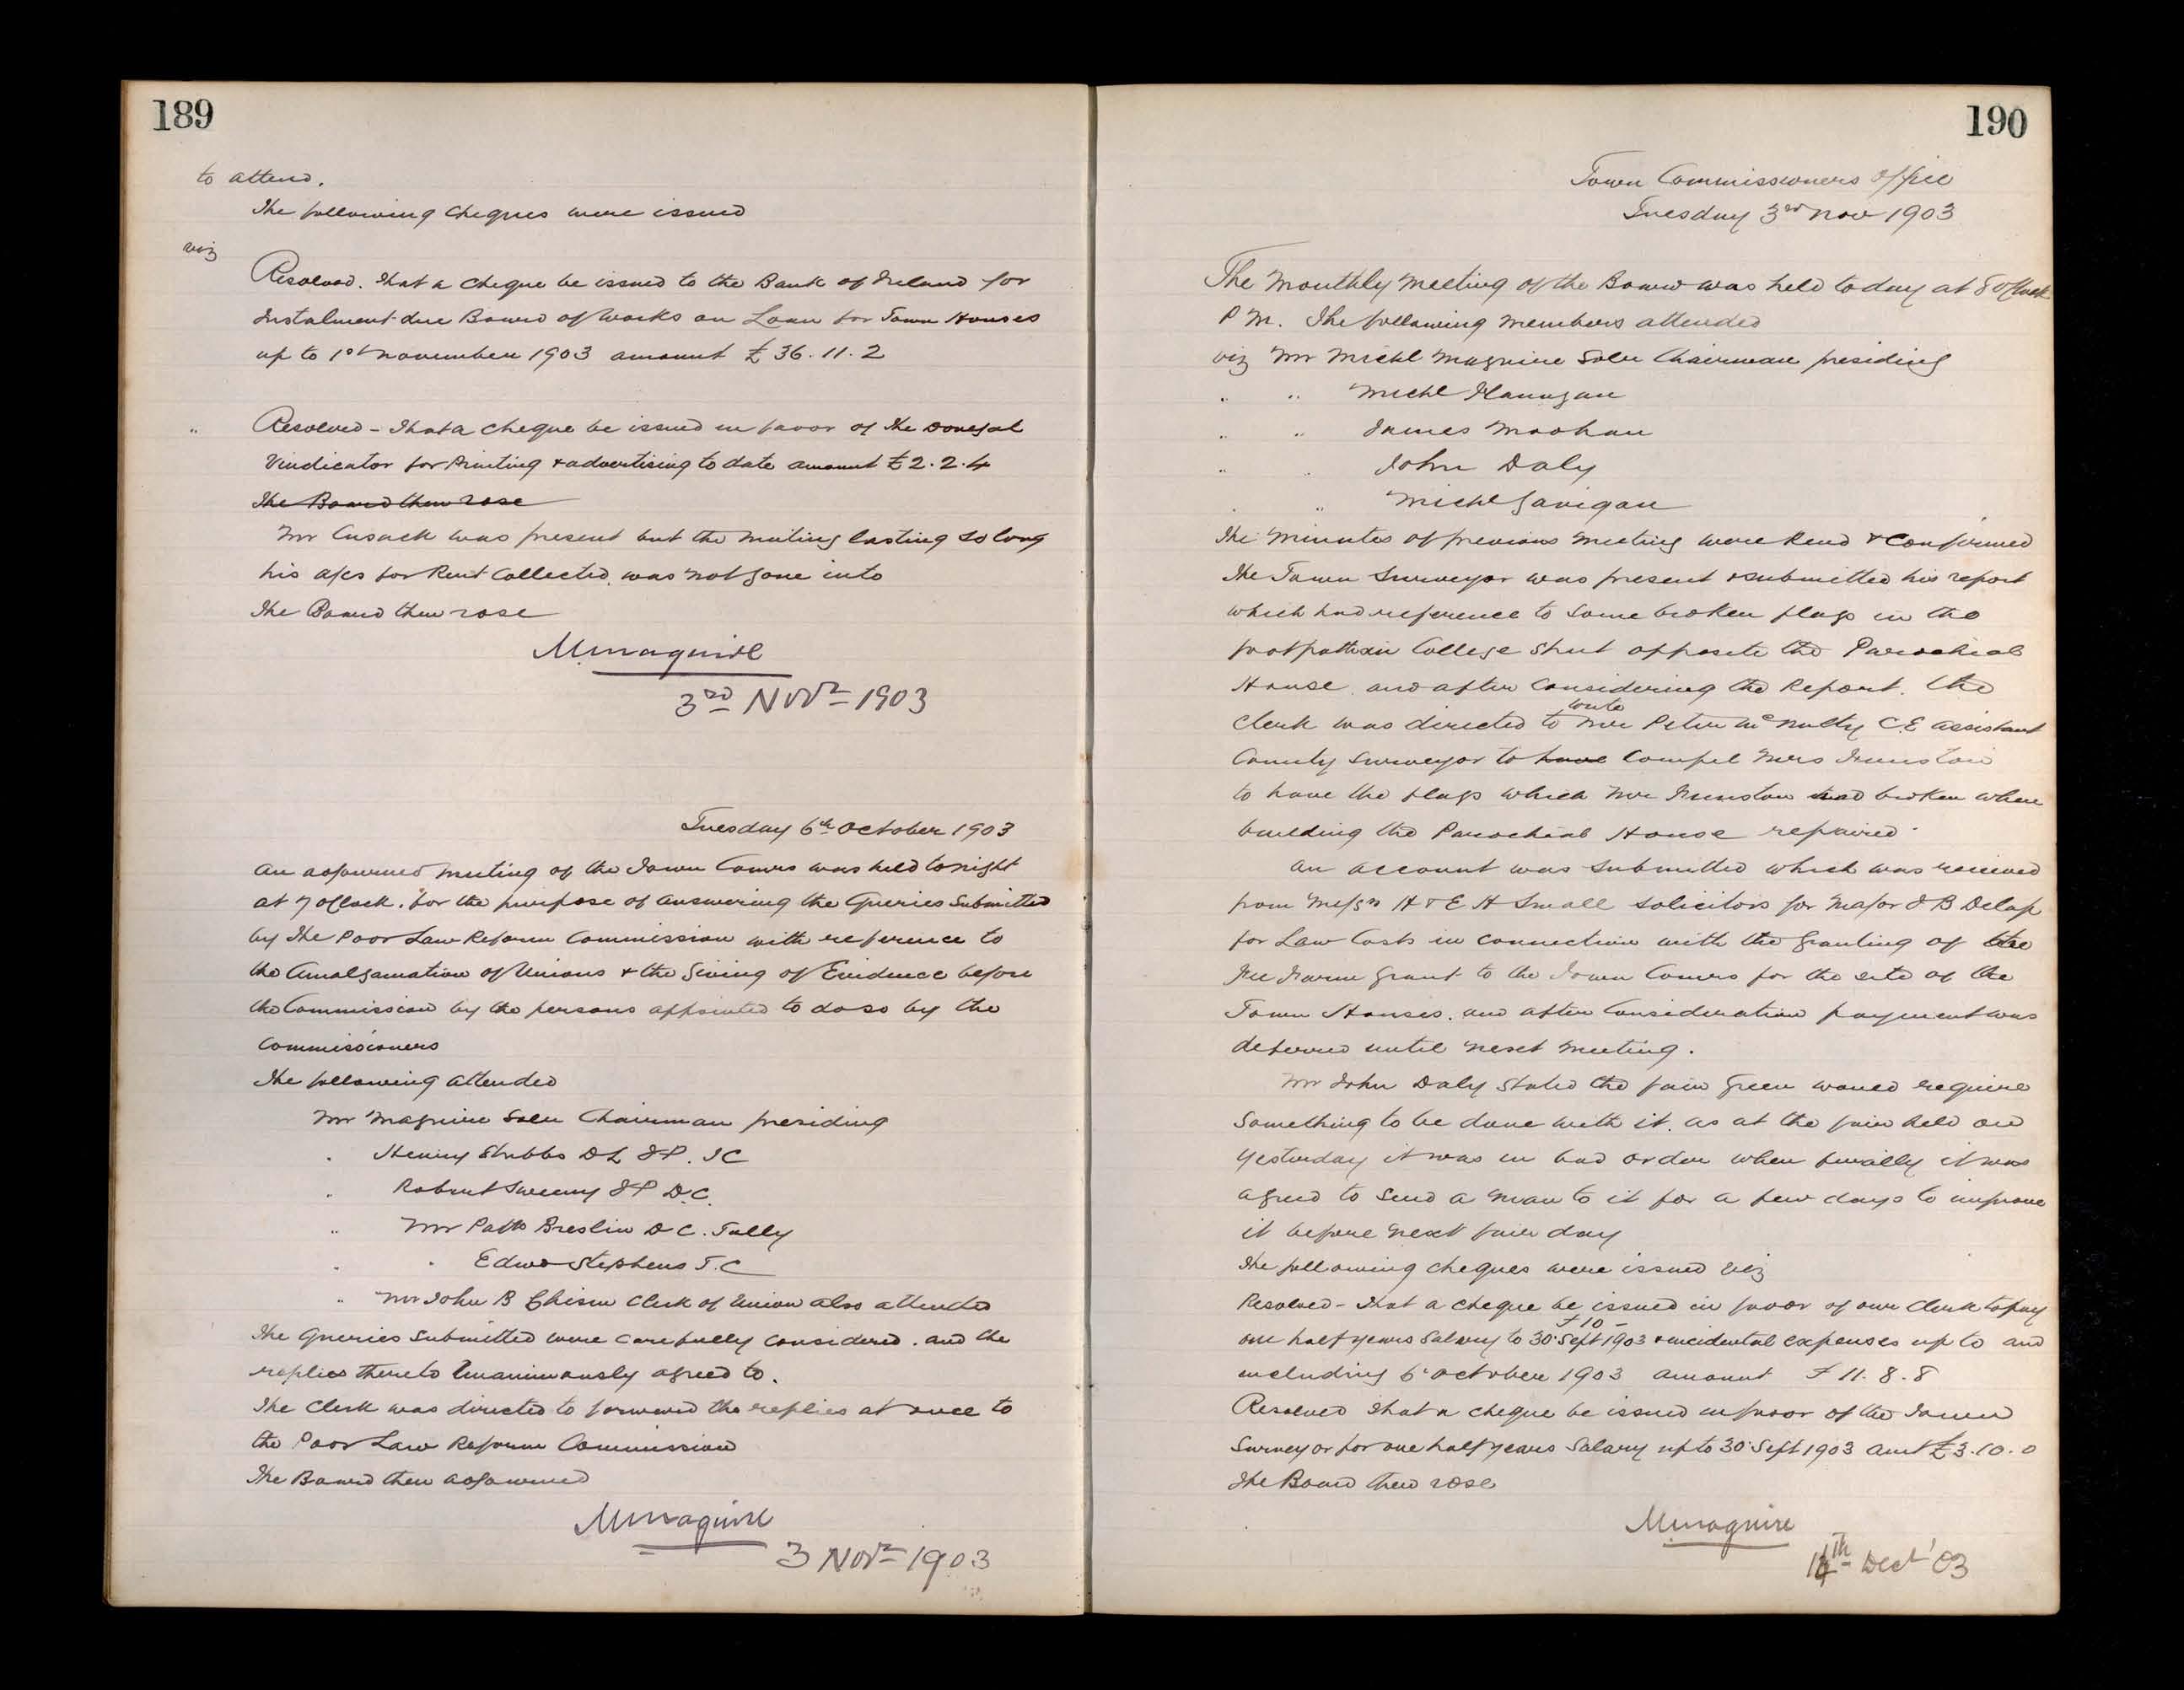 189
to attend.
The following cheques were issued
viz
Resolved. That a cheque be issued to the Bank of Ireland for
Instalment due Board of Works on Loan for Town Houses
up to 1st November 1903 amount £36.11.2
" Resolved - That a cheque be issued in favor of the Donegal
Vindicator for Printing & advertising to date amount £2.2.4
The Board then rose
Mr Cusack was present but the meeting lasting so long
his a/cs for Rent Collected. was not gone into
The Board then rose
M Maguire
3rd Novr 1903
Tuesday 6th October 1903
An adjourned meeting of the Town Comrs was held tonight
at 7 oClock. for the purpose of answering the Queries Submitted
by the Poor Law Reform Commission with reference to
the Amalgamation of Unions & the Giving of Evidence before
the Commission by the persons appointed to do so by the
Commissioners
The following attended
Mr Maguire Solr Chairman presiding
" Henry Stubbs DL JP. TC
" Robert Sweeny JP D.C.
" Mr Patk Breslin D C. Tully
" " Edwd Stephens T.C
" Mr John B Chism Clerk of Union also attended
The Queries Submitted were carefully considered. and the
replies thereto Unanimously agreed to.
The Clerk was directed to forward the replies at once to
the Poor Law Reform Commission
The Board then adjourned
M Maguire
3 Novr 1903
190
Town Commissioners Office
Tuesday 3rd Nov 1903
The Monthly Meeting of the Board was held today at 8 oClock
P M. The following members attended
viz Mr Michl Maguire Solr Chairman presiding
" " Michl Flanagan
" " James Moohan
" " John Daly
" " Michl Gavigan
The Minutes of previous Meeting were Read & Confirmed
The Town Surveyor was present & submitted his report
which had reference to some broken flags in the
footpath in College Street opposite the Parochial
House. and after Considering the Report. the
write
Clerk was directed to Mr Peter McNulty C.E assistant
County Surveyor to have Compel Mrs
to have the flags which Mr had broken when
building the Parochial House repaired.
An account was submitted which was received
from Messrs H & E H Small Solicitors for Major J B Delap
for Law Costs in connection with the Granting of the
Fee Farm Grant to the Town Comrs for the site of the
Town Houses. and after Consideration payment was
deferred until next Meeting.
Mr John Daly stated the fair green would require
Something to be done with it. as at the fair held on
yesterday it was in bad order when finally it was
agreed to send a man to it for a few days to improve
it before next fair day
The following cheques were issued viz
Resolved - That a cheque be issued in favor of our Clerk to pay
£10 -
one half years Salary to 30 Sept 1903 & incidental expenses up to and
including 6 October 1903 amount £11.8.8
Resolved that a cheque be issued in favor of the Town
Surveyor for one half years Salary up to 30 Sept 1903 amt £3.10.0
The Board then rose
M Maguire
Decr '03